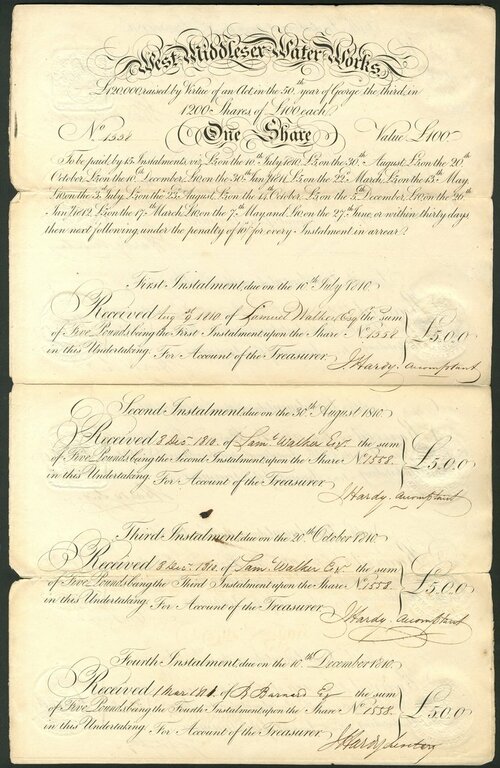 West Middlesex Water Works
£120,000 raised by Virtue of an Act, in the 50th year of George the third, in
1200 Shares of £100 each.
No. 1558 One Share Value £100
To be paid by 15 Instalments, viz. £5 on the 10th July 1810, £5 on the 30th August, £5 on the 20th
October, £5 on the 10th December, £10 on the 30th Jany. 1811, £5 on the 22d March, £10 on the 13th May,
£10 on the 3d July, £5 on the 23d August, £5 on the 14th October, £5 on the 5th December, £10 on the 26th
Jany. 1812, £5 on the 17th March, £10 on the 7th May, and £10 on the 27th June, or within thirty days
then next following, under the penalty of 10s. for every Instalment in arrear.
First Instalment, due on the 10th July 1810.
Received Augt. 9 1810 of Samuel Walker Esq the sum
of Five Pounds being the First Instalment upon the Share No. 1558 £5,0,0
in this Undertaking. For Account of the Treasurer
J Hardy. accomptant
Second Instalment due on the 30th August 1810.
Received 8 Decr. 1810. of Saml. Walker Esqr. the sum
of Five Pounds being the Second Instalment upon the Share No. 1558. £5,0,0
in this Undertaking For Account of the Treasurer
J Hardy accomptant
Third Instalment, due on the 20th October 1810.
Received 8 Decr. 1810. of Saml. Walker Esqr. the sum
of Five Pounds being the Third Instalment upon the Share No. 1558 £5,0,0
in this Undertaking. For Account of the Treasurer
J Hardy. accomptant
Fourth Instalment, due on the 10th December 1810.
Received 1 Mar 1811. of B Barnard Esq the sum
of Five Pounds being the Fourth Instalment upon the Share No. 1558. £5,0,0
in this Undertaking. For Account of the Treasurer
J Hardy